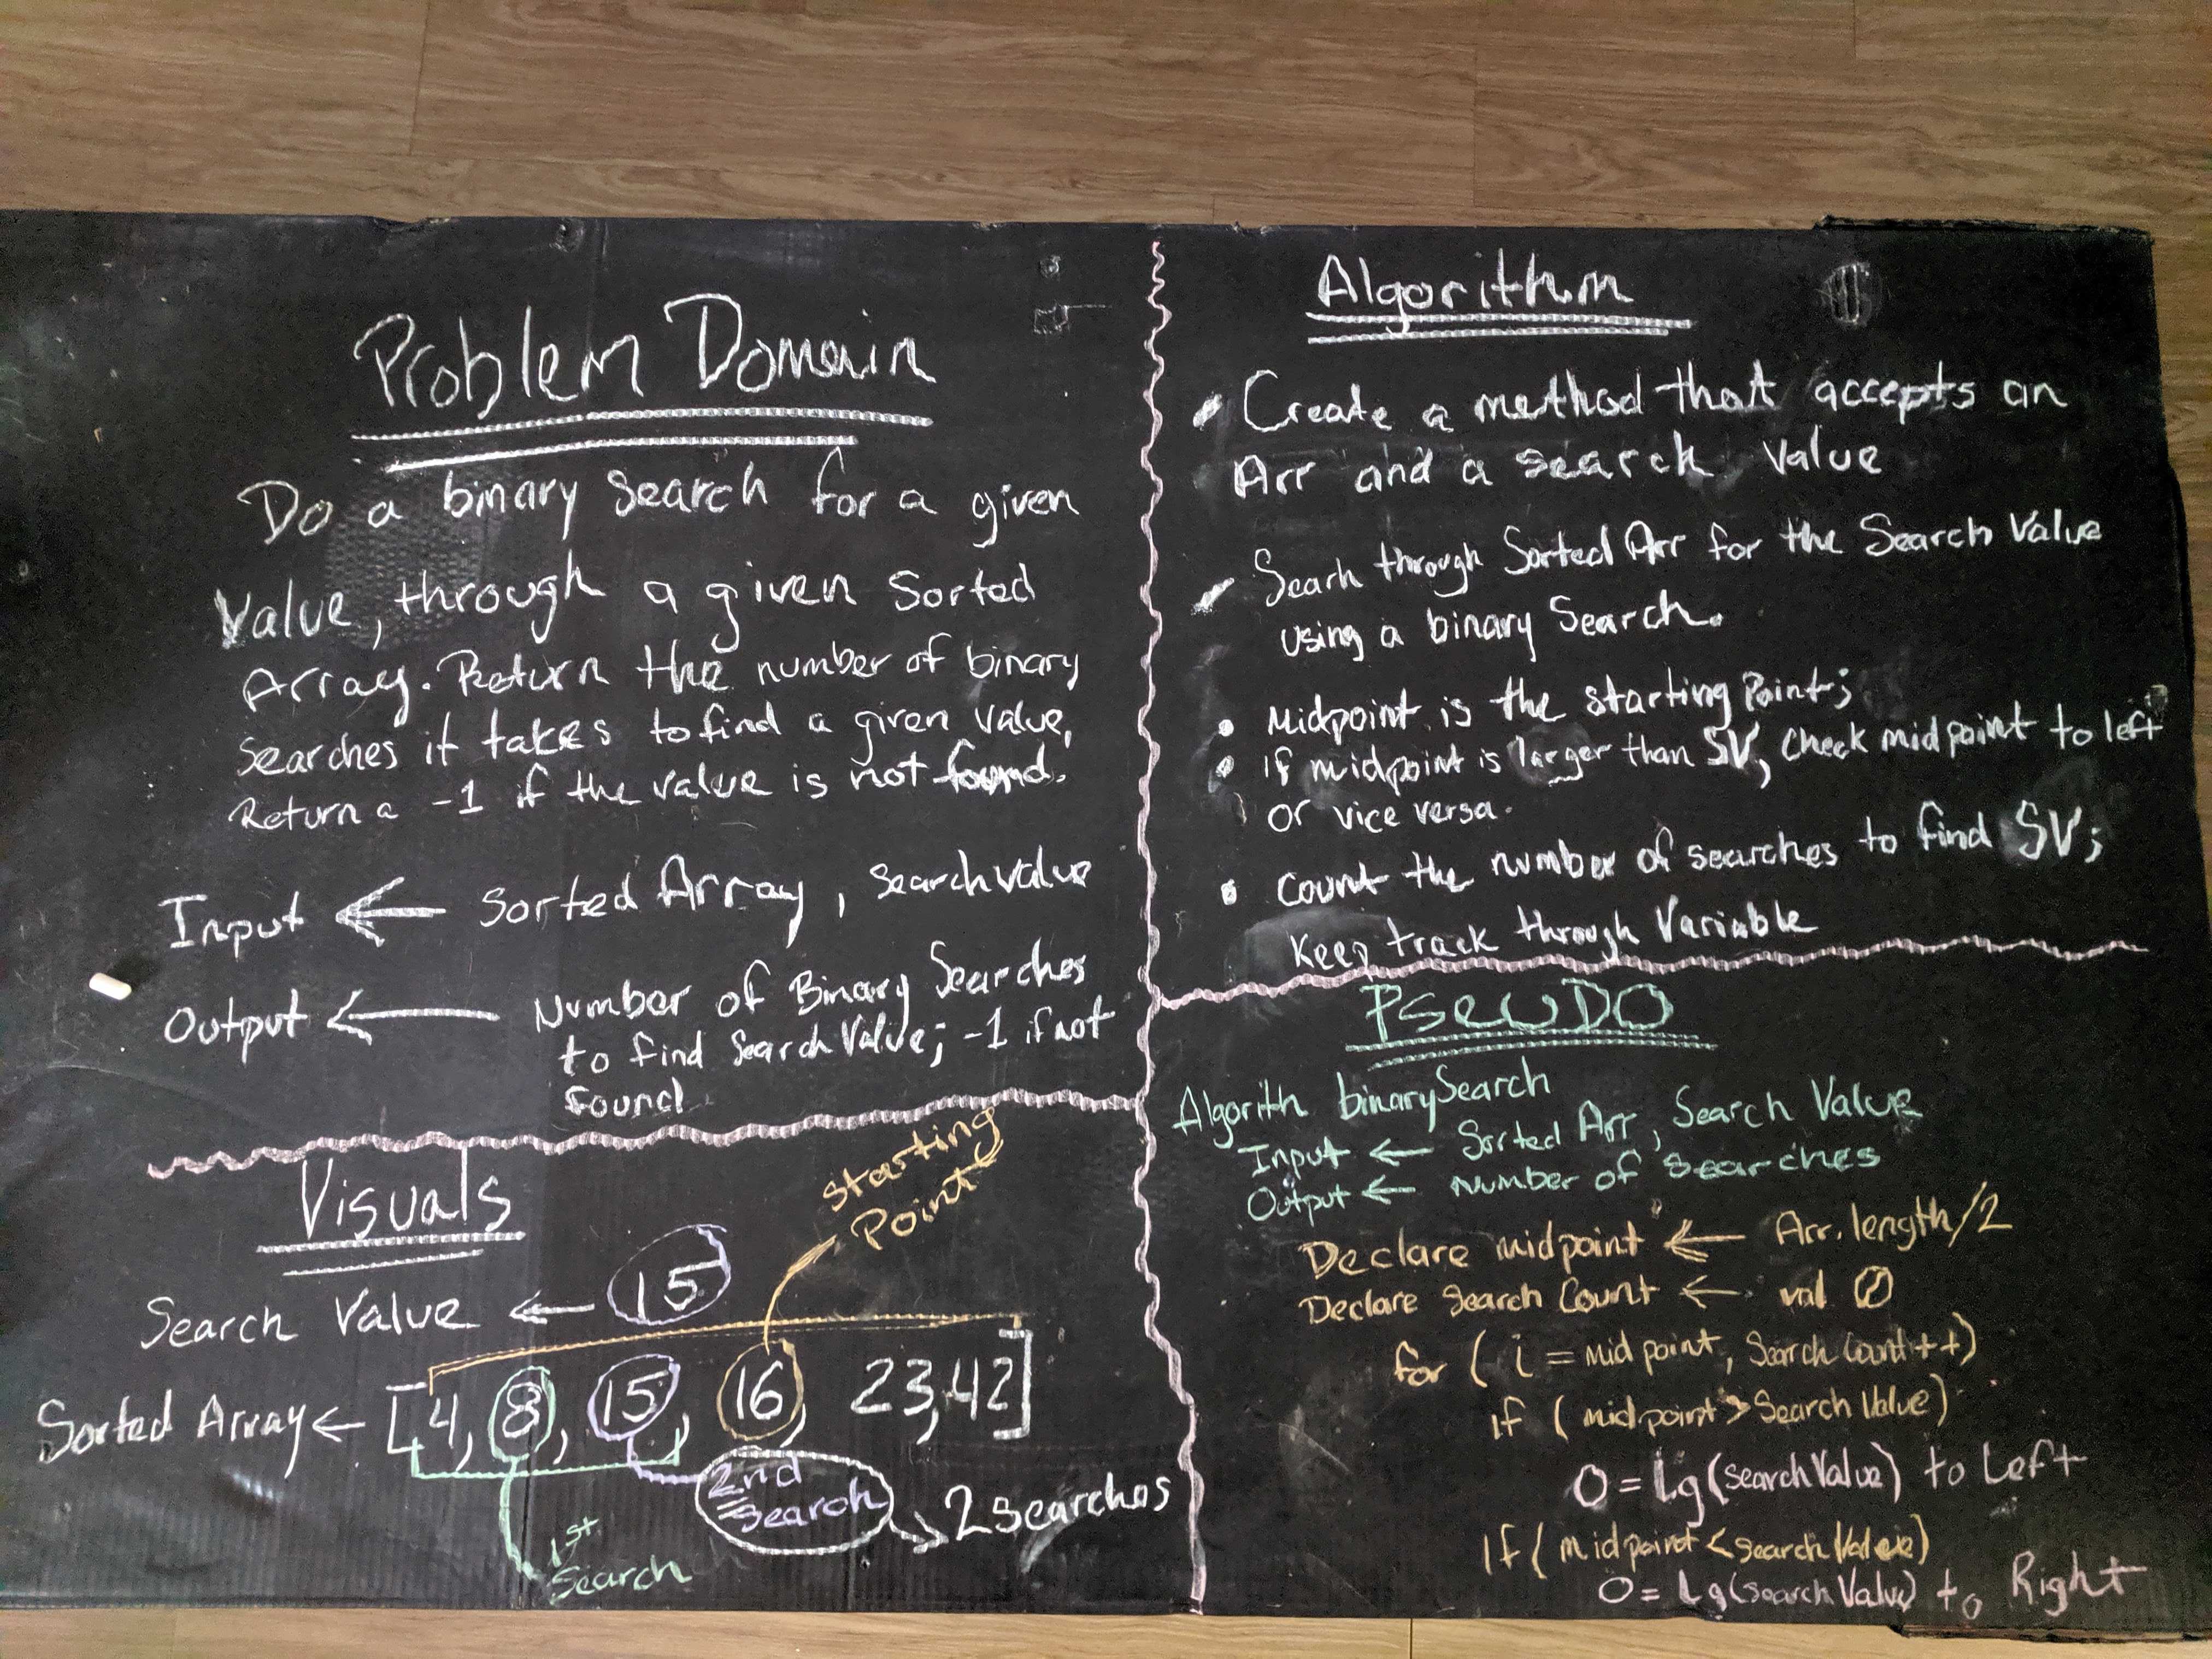 Problem Domain
Do a binary Search for a given
Value, through a given Sorted
Array. Return the number of binary
searches it takes to find a given value,
Return a -1 if the value is not found.
Input ← Sorted Array, searchvalue
Output ← Number of Binary Searches
to find Search Value; -1 if not
found
Visuals
Starting
Point
Search Value ← 15
Sorted Array ← [4, 8, 15, 16, 23, 42]
1st
Search
2nd
Search
2 searches
Algorithm
Create a method that accepts an
Arr and a search value
Searh through Sorted Arr for the Search Value
using a binary Search.
• Midpoint is the starting Point;
• if midpoint is larger than SV, Check midpoint to left
or vice versa.
• Count the number of searches to find SV;
Keep track through Variable
PSEUDO
Algorith binarySearch
Input ← Sorted Arr, Search Value
Output ← Number of Searches
Declare midpoint ← Arr.length/2
Declare Search Count ← val 0
for ( i = midpoint, Search Count++)
if ( midpoint > Search Value)
O = Lg(searchValue) to Left
If ( midpoint < search Value)
O = Lg(search Value) to Right